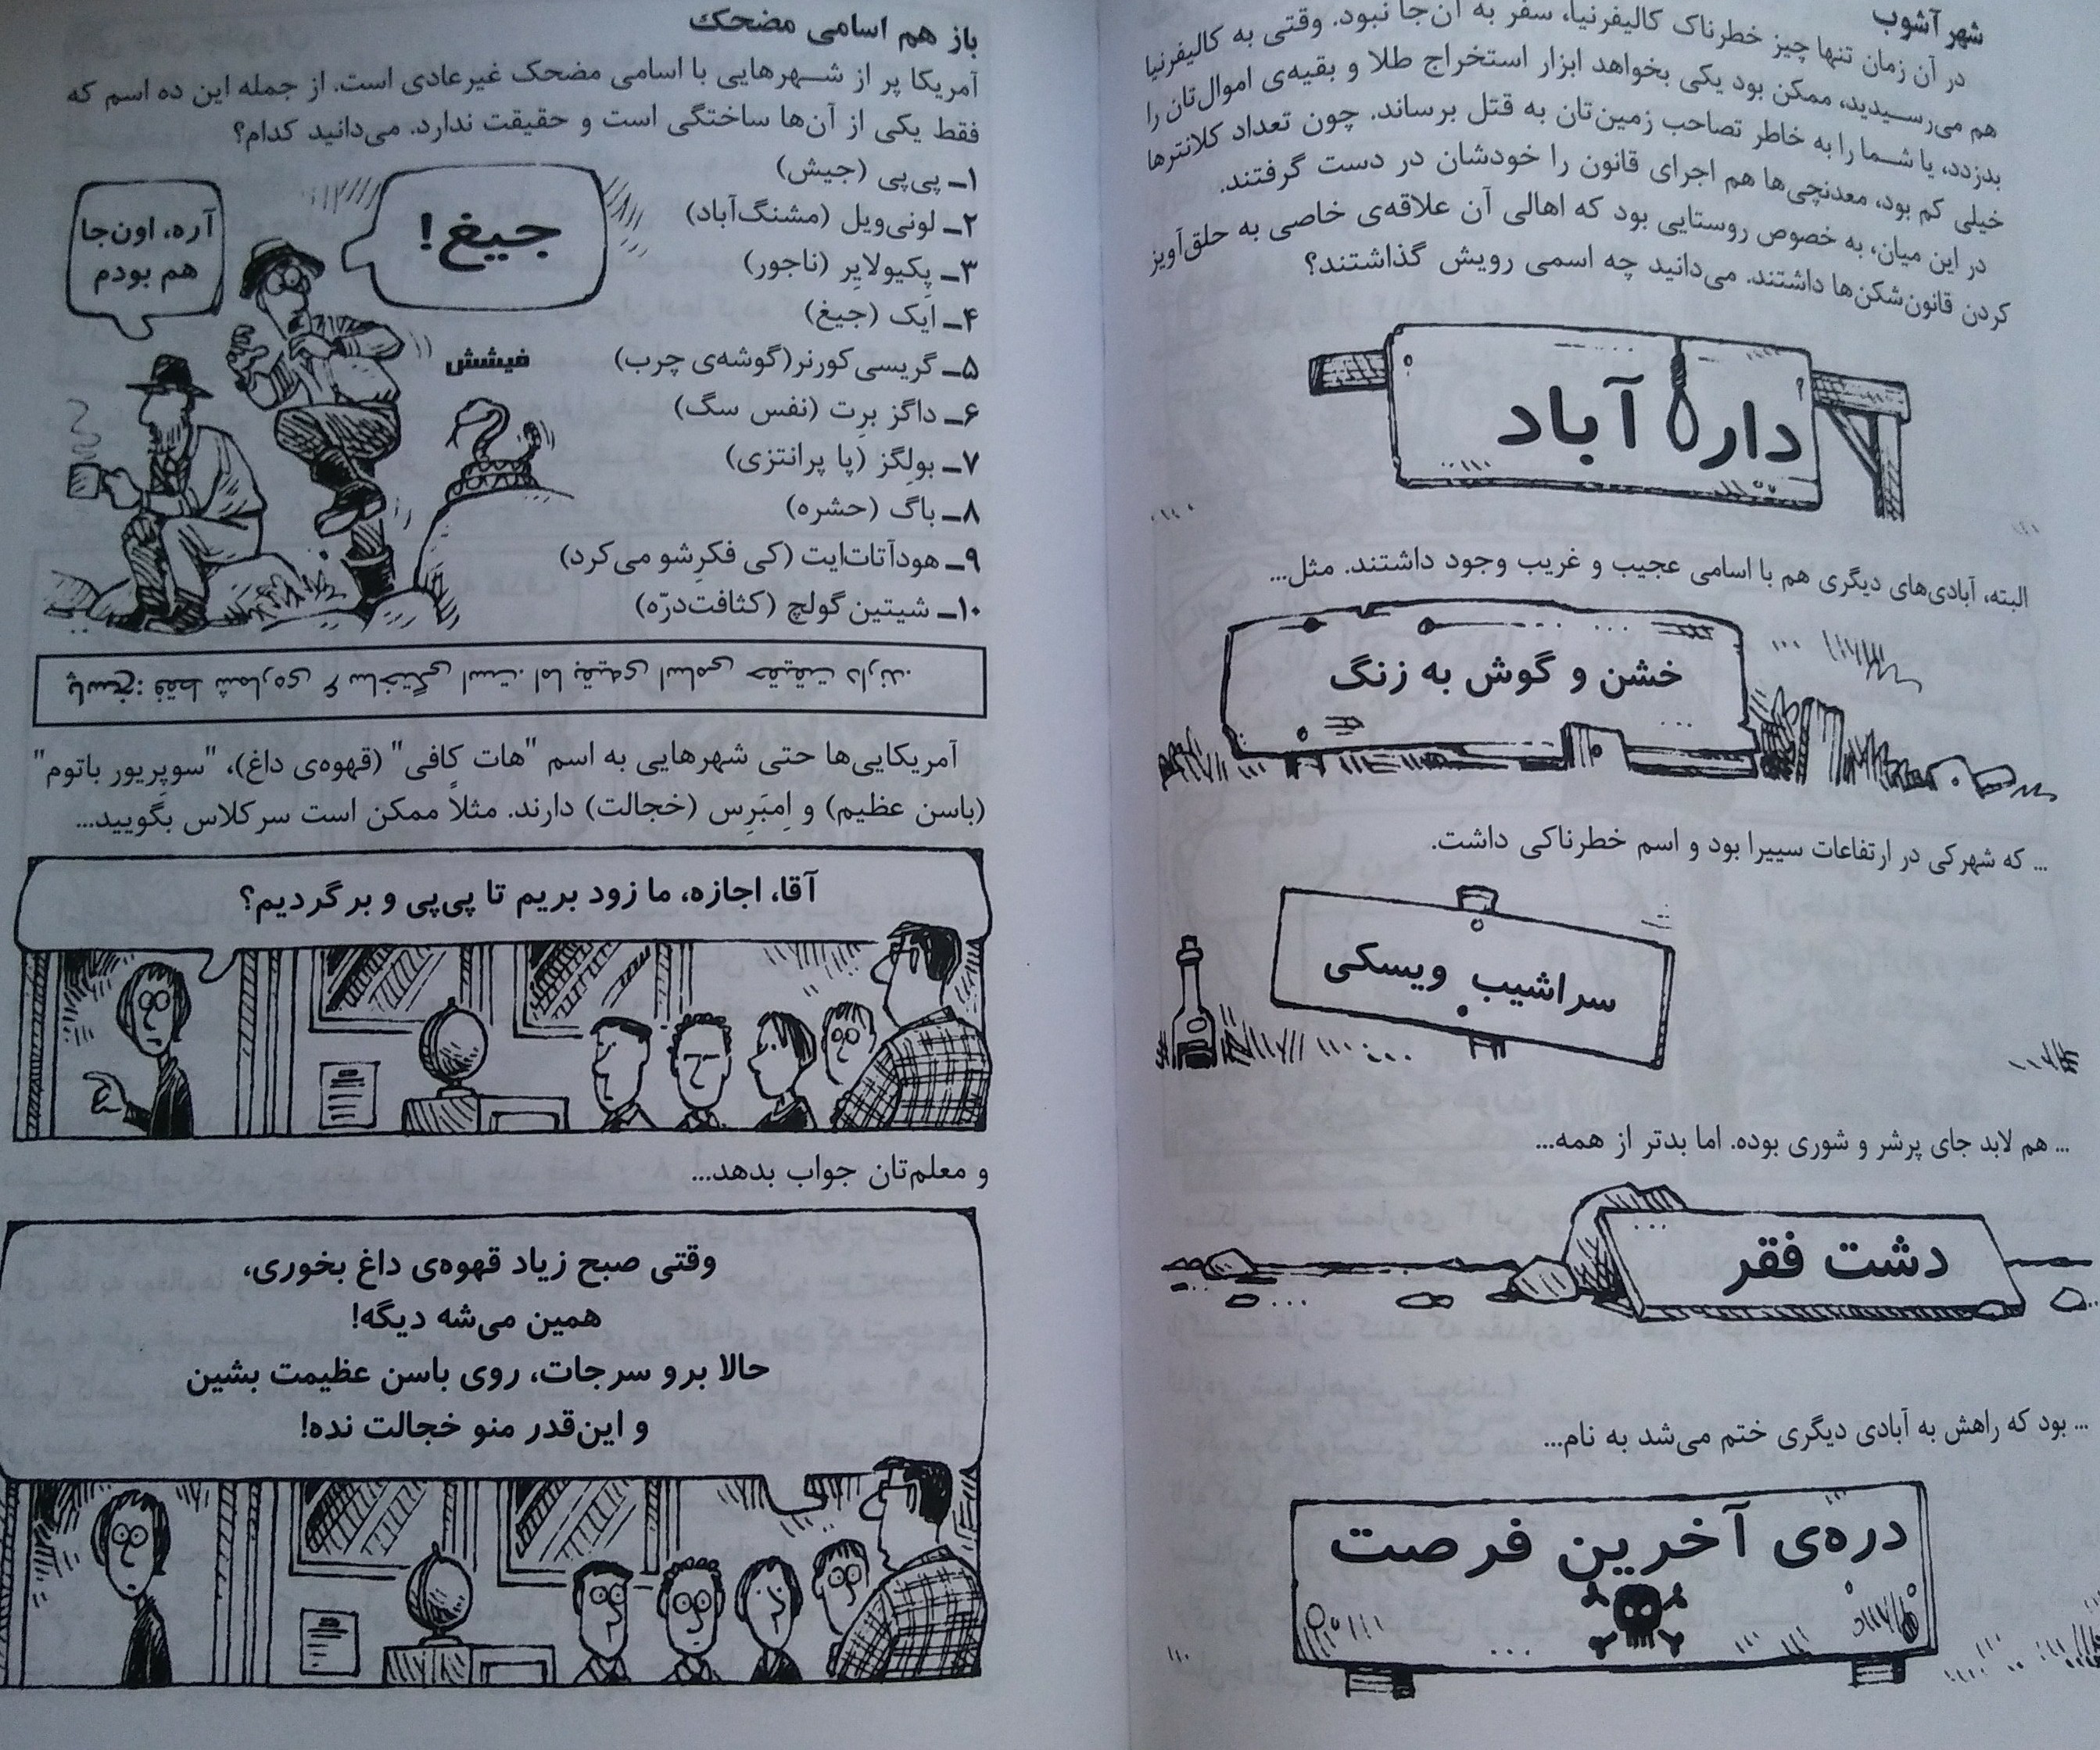 شهر آشوب
در آن زمان تنها چیز خطرناک کالیفرنیا، سفر به آن‌جا نبود. وقتی به کالیفرنیا
هم می‌رسیدید، ممکن بود یکی بخواهد ابزار استخراج طلا و بقیه‌ی اموال‌تان را
بدزدد، یا شما را به خاطر تصاحب زمین‌تان به قتل برساند. چون تعداد کلانترها
خیلی کم بود، معدنچی‌ها هم اجرای قانون را خودشان در دست گرفتند.
در این میان، به خصوص روستایی بود که اهالی آن علاقه‌ی خاصی به حلق‌آویز
کردن قانون‌شکن‌ها داشتند. می‌دانید چه اسمی رویش گذاشتند؟
دار آباد
البته، آبادی‌های دیگری هم با اسامی عجیب و غریب وجود داشتند. مثل...
خشن و گوش به زنگ
... که شهرکی در ارتفاعات سییرا بود و اسم خطرناکی داشت.
سراشیب ویسکی
... هم لابد جای پرشر و شوری بوده. اما بدتر از همه...
دشت فقر
... بود که راهش به آبادی دیگری ختم می‌شد به نام...
دره‌ی آخرین فرصت
باز هم اسامی مضحک
آمریکا پر از شهرهایی با اسامی مضحک غیرعادی است. از جمله این ده اسم که
فقط یکی از آن‌ها ساختگی است و حقیقت ندارد. می‌دانید کدام؟
۱ـ پی‌پی (جیش)
۲ـ لونی‌ویل (مشنگ‌آباد)
۳ـ پِکیولایِر (ناجور)
۴ـ ایک (جیغ)
۵ـ گریسی‌کورنر(گوشه‌ی چرب)
۶ـ داگز برِت (نفس سگ)
۷ـ بولِگز (پا پرانتزی)
۸ـ باگ (حشره)
۹ـ هودآتات‌ایت (کی فکرِشو می‌کرد)
۱۰ـ شیتین گولچ (کثافت‌درّه)
جیغ!
آره، اون‌جا
هم بودم
فیشش
پاسخ: فقط شماره‌ی ۶ ساختگی است. اما بقیه‌ی اسامی حقیقت دارند.
آمریکایی‌ها حتی شهرهایی به اسم "هات کافی" (قهوه‌ی داغ)، "سوپِریور باتوم"
(باسن عظیم) و اِمبَرِس (خجالت) دارند. مثلاً ممکن است سر کلاس بگویید...
آقا، اجازه، ما زود بریم تا پی‌پی و برگردیم؟
و معلم‌تان جواب بدهد...
وقتی صبح زیاد قهوه‌ی داغ بخوری،
همین می‌شه دیگه!
حالا برو سرجات، روی باسن عظیمت بشین
و این‌قدر منو خجالت نده!